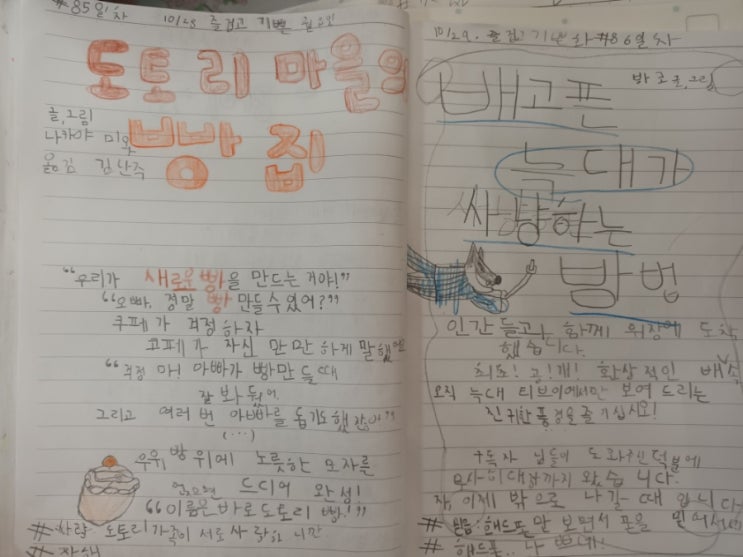 #85일차
10/28 즐겁고 기쁜 월요일
도토리 마을의
빵집
글,그림
나카야 미와
옮김 김난주
"우리가 새로운 빵을 만드는 거야!"
"오빠, 정말 빵 만들수 있어?"
쿠페가 걱정하자
코페가 자신 만만하게 말했
"걱정 마! 아빠가 빵 만들 때
잘 봐 뒀
그리고 여러 번 아빠를 돕기도 했잖아"
(...)
우유 빵 위에 노릇한 모자를
드디어 완성!
"이름은 바로 도토리 빵!"
#사랑 도토리 가족이 서로 사랑하니까
#
10/29. 즐겁고 기쁜 화 #86일차
글,그림
배고픈
늑대가
사냥하는
방법
인간들과 함께 위장에 도착
했습니다.
최초! 공!개! 환상적인 뱃속
오직 늑대 티브이에서만 보여 드리는
진귀한 풍경을 즐기십시오!
구독자 님들이 도와주신 덕분에
무사히 대장까지 왔습니다.
자, 이제 밖으로 나갈 때 입니다
# 핸드폰만 보면서 폰을
# 핸드폰..나빠네!